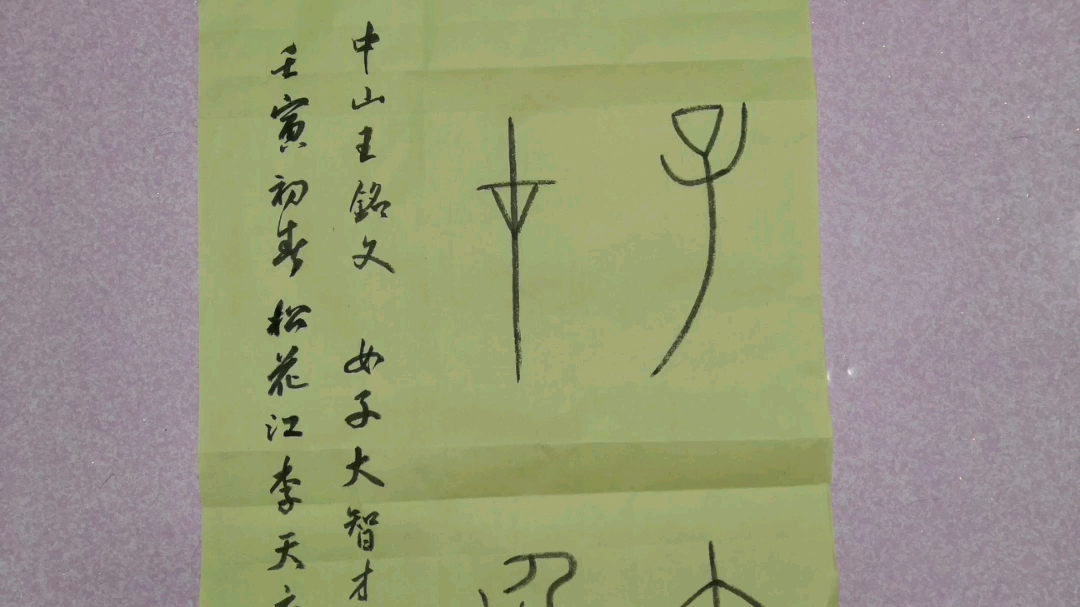 子
才
中山王銘文 女子大智才
壬寅初春松花江李天